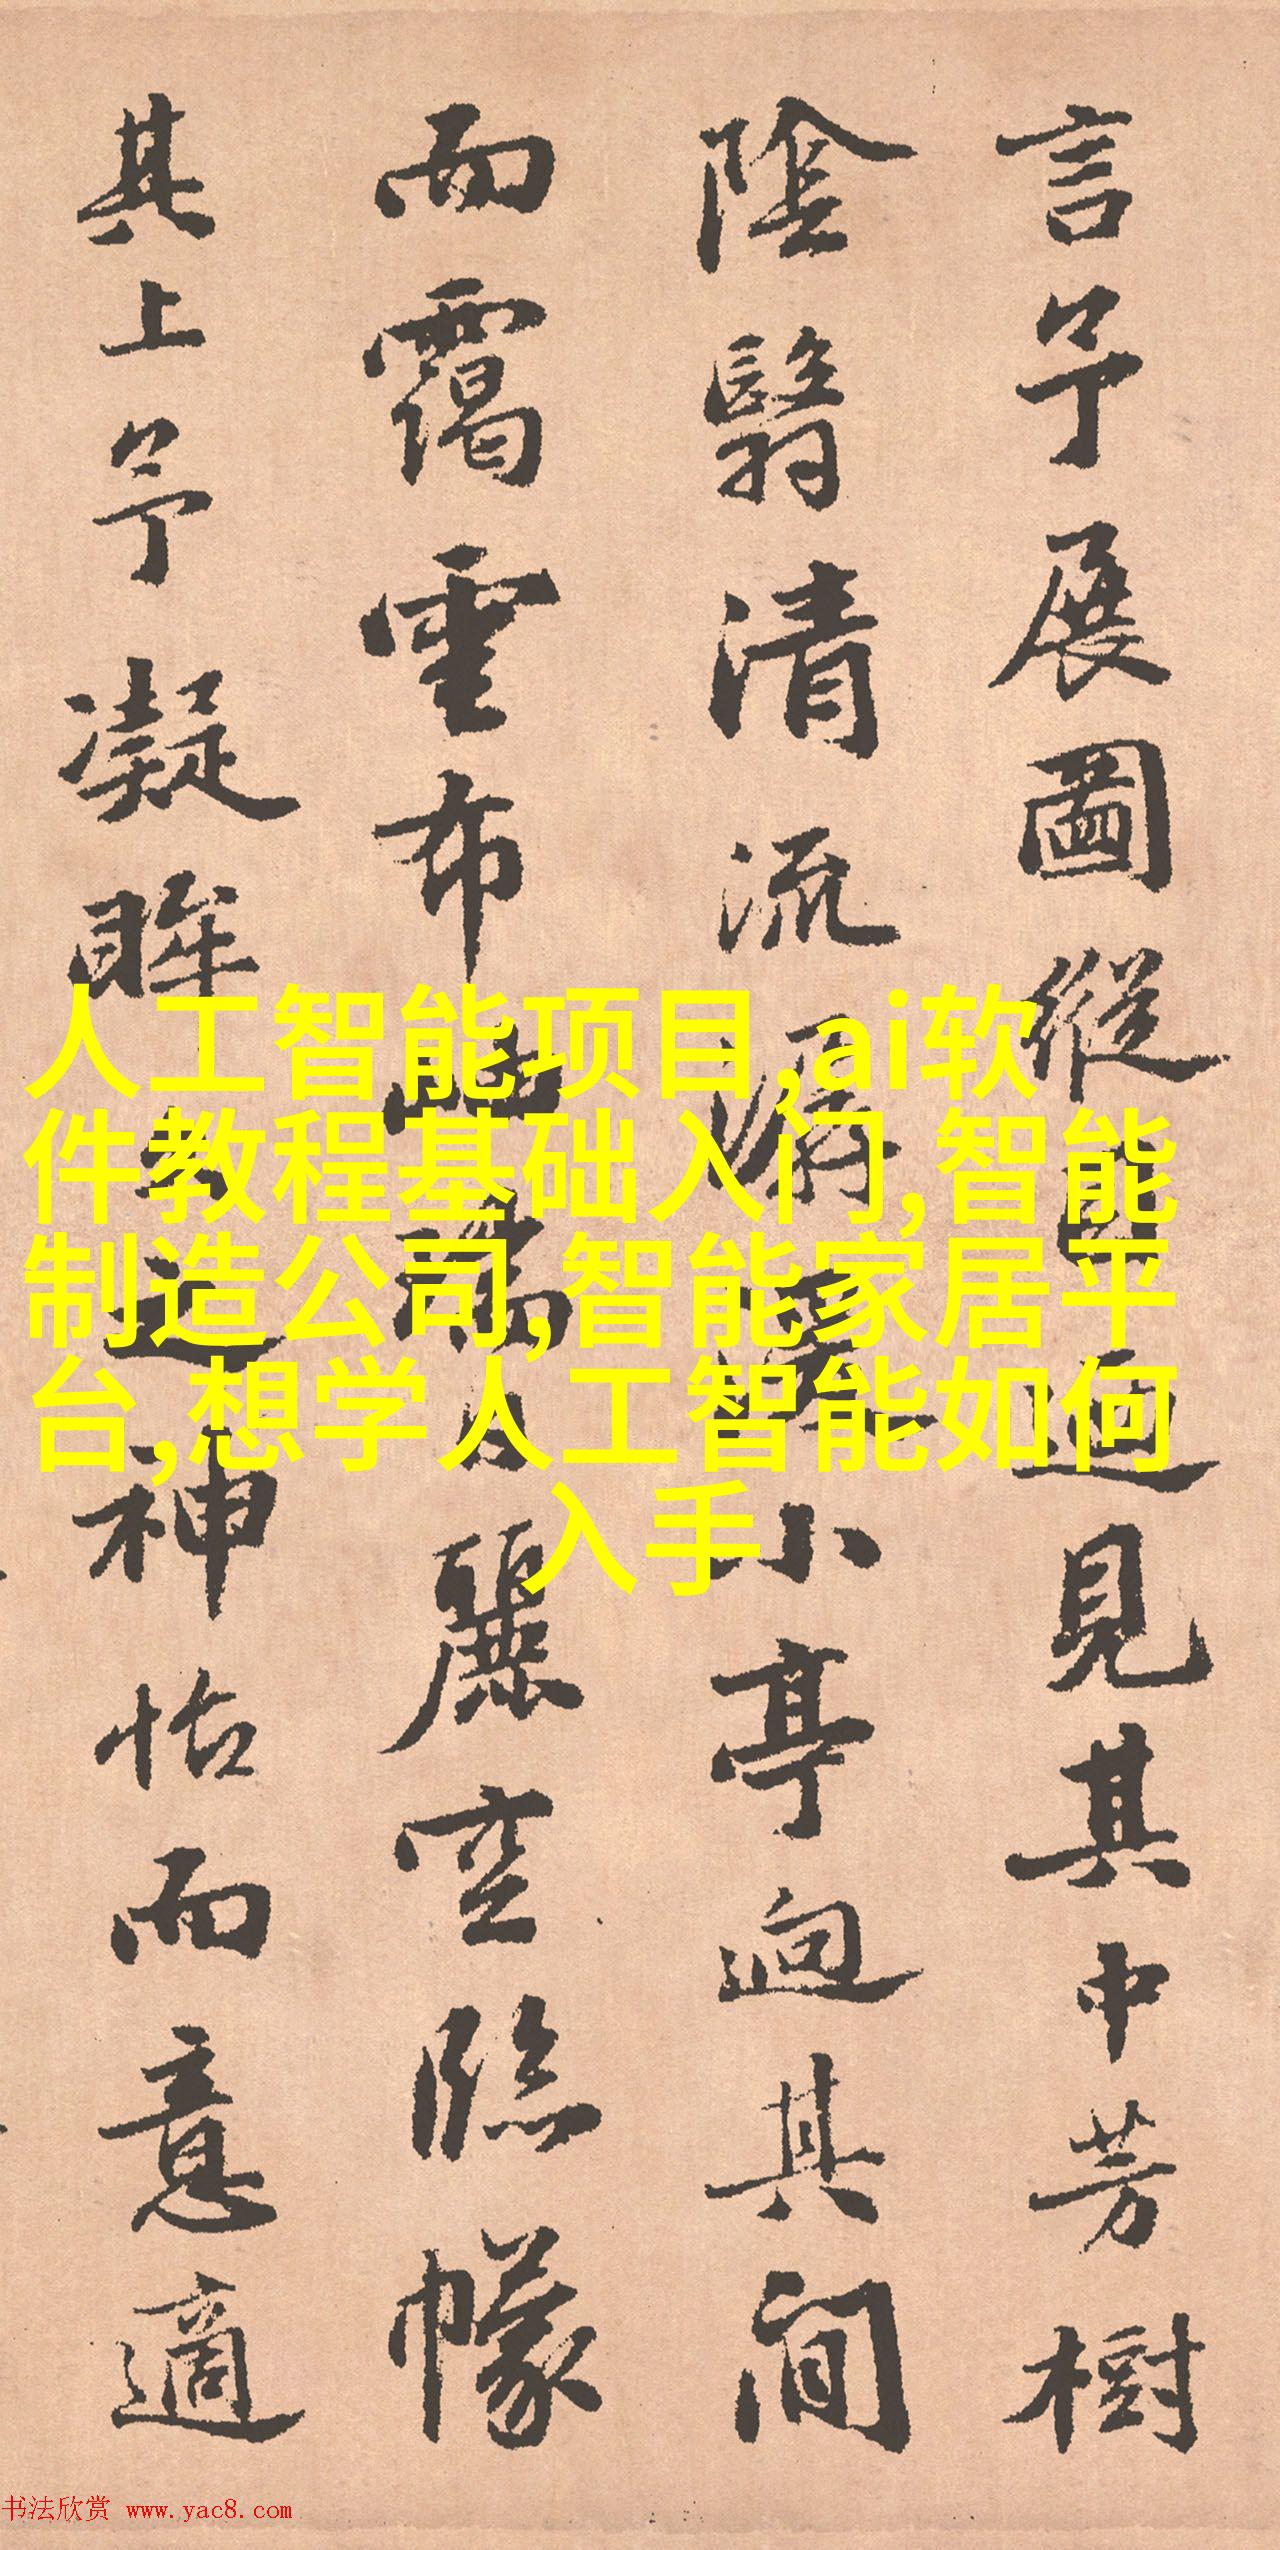 言予展圖縱目迥見其中芳樹
陰翳清流潺湲小亭迥其間
而靄雲布
麗空臨幪
其上予凝眸
神怡而意適
人工智能项目,ai软
件教程基础入门,智能
制造公司,智能家居平
台,想学人工智能如何
入手
书法欣赏 www.yac8.com